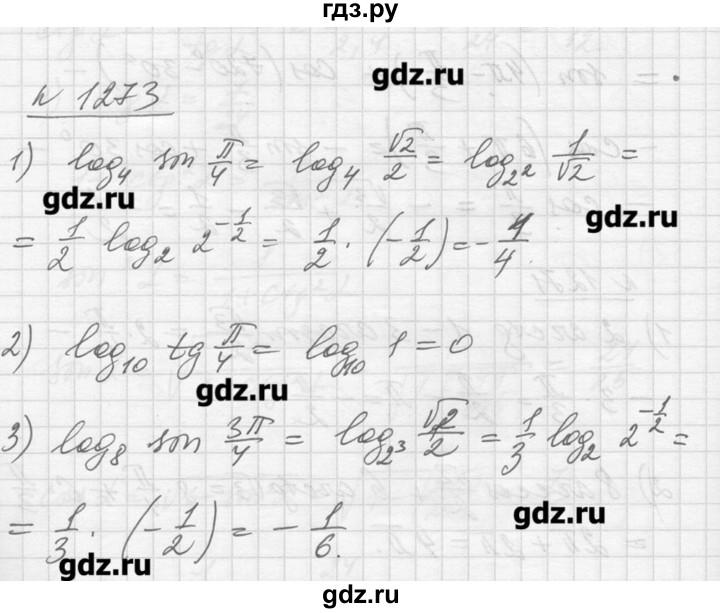 гдз.ру
gdz.ru
N 1273
1) log₄ sin π/4 = log₄ √2/2 = log₂² 1/√2 =
gdz.ru
gdz.ru
= 1/2 log₂ 2^(-1/2) = 1/2 · (-1/2) = -1/4.
2) log₁₀ tg π/4 = log₁₀ 1 = 0
gdz.ru
3) log₈ sin 3π/4 = log₂³ √2/2 = 1/3 log₂ 2^(-1/2) =
gdz.ru
= 1/3 · (-1/2) = -1/6.
gdz.ru
gdz.ru